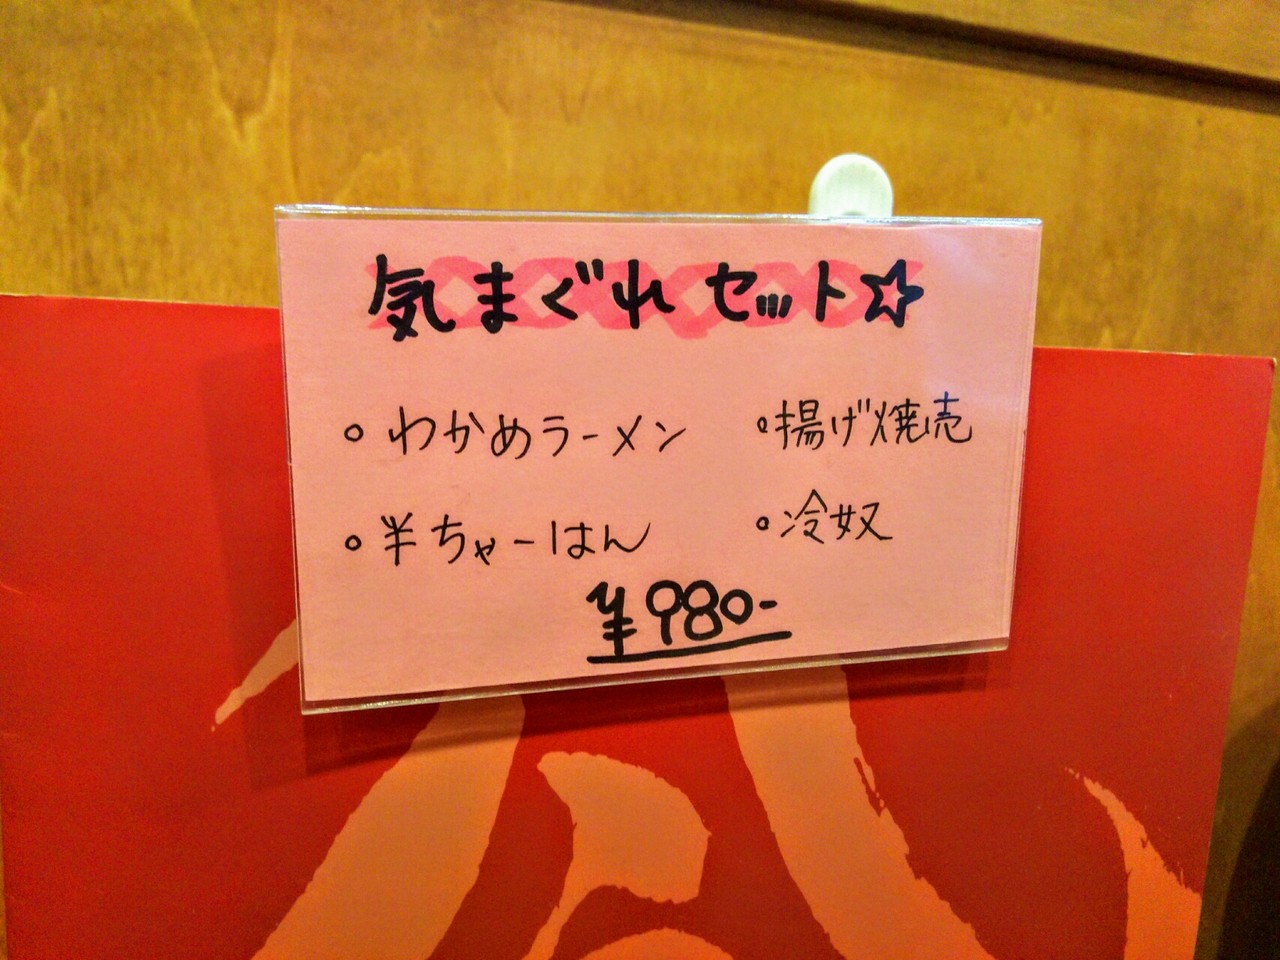 気まぐれセット☆
◦わかめラーメン ◦揚げ焼売
◦半ちゃーはん ◦冷奴
¥980-